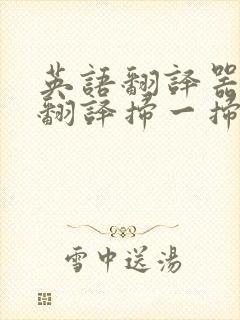 英語翻譯器
翻譯掃一掃
雪中送湯